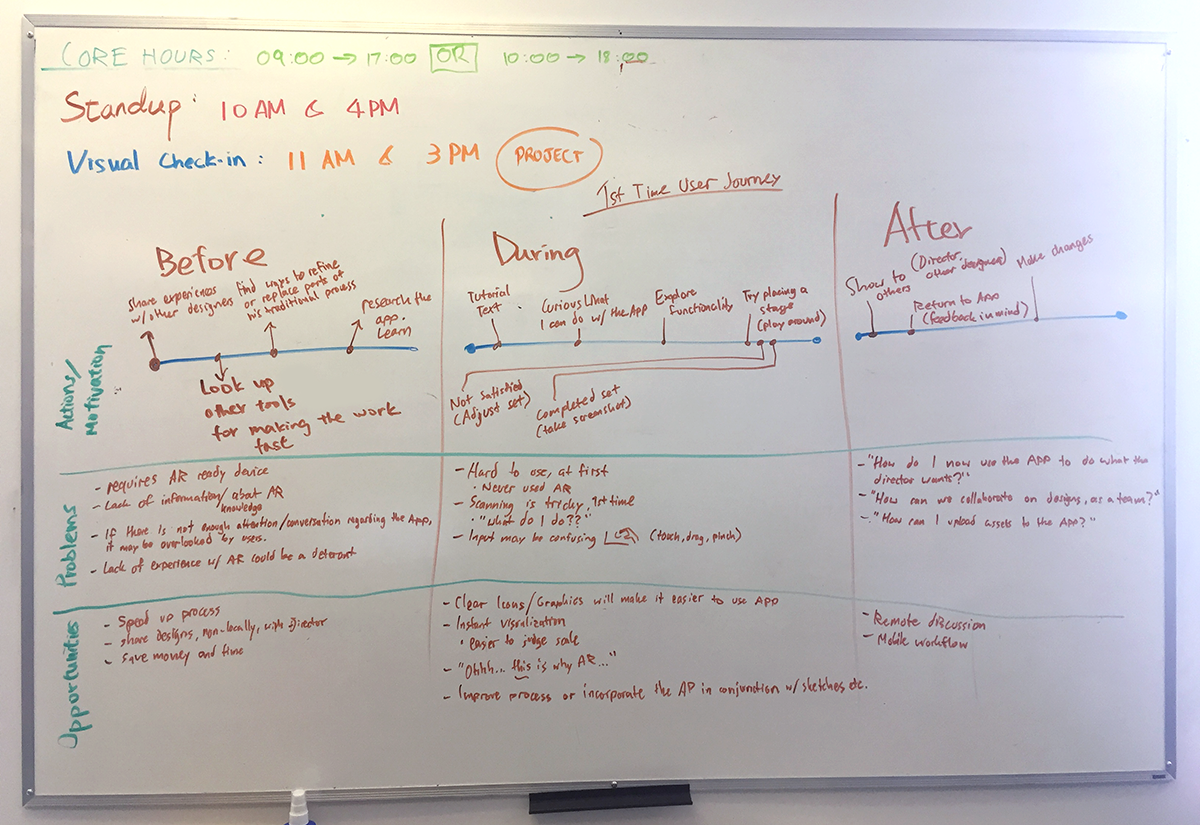 CORE HOURS: 09:00 → 17:00 OR 10:00 → 18:00
Standup: 10 AM & 4 PM
Visual Check-in: 11 AM & 3 PM PROJECT
1st Time User Journey
Before
share experiences
w/other designers
Find ways to refine
or replace parts of
his traditional process
research the
app.
Learn
Look up
other tools
for making the work
fast
During
Tutorial
Text
Curious what
I can do w/ the App
Explore
functionality
Try placing a
stage
(play around)
Not satisfied
(Adjust set)
Completed set
(take screenshot)
After
Show to
others
(Director,
other designer)
Return to App
(feedback in mind)
Make changes
Actions/
Motivation
Problems
- requires AR ready device
- Lack of information/about AR
knowledge
- If there is not enough attention/conversation regarding the App,
it may be overlooked by users.
- Lack of experience w/ AR could be a deterant
- Hard to use, at first
• Never used AR
- Scanning is tricky, 1st time
• "What do I do??"
- Input may be confusing (touch, drag, pinch)
- "How do I now use the APP to do what the
director wants?"
- "How can we collaborate on designs, as a team?"
- "How can I upload assets to the App?"
Opportunities
- Speed up process
- share designs, non-locally, with Director
- Save money and time
- Clear Icons/Graphics will make it easier to use APP
- Instant visualization
• easier to judge scale
- "Ohhh... this is why AR..."
- Improve process or incorporate the AP in conjunction w/ sketches etc.
- Remote discussion
- Mobile workflow